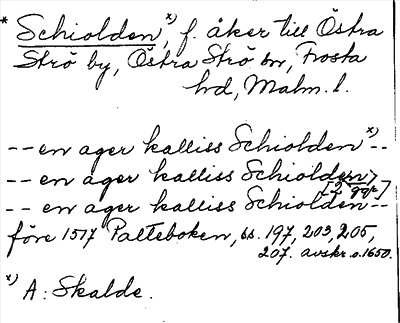 * Schiolden,ˣ⁾ f. åker till Östra
Strö by, Östra Strö sn, Frosta
hd, Malm. l.
-- en ager kalliss Schioldenˣ⁾--
-- en ager kalliss Schiolden>
[2 ggr]
-- en ager kalliss Schiolden--
före 1517 Palteboken, ss. 197, 203, 205,
207. avskr. o. 1650.
ˣ⁾ A: Skalde.